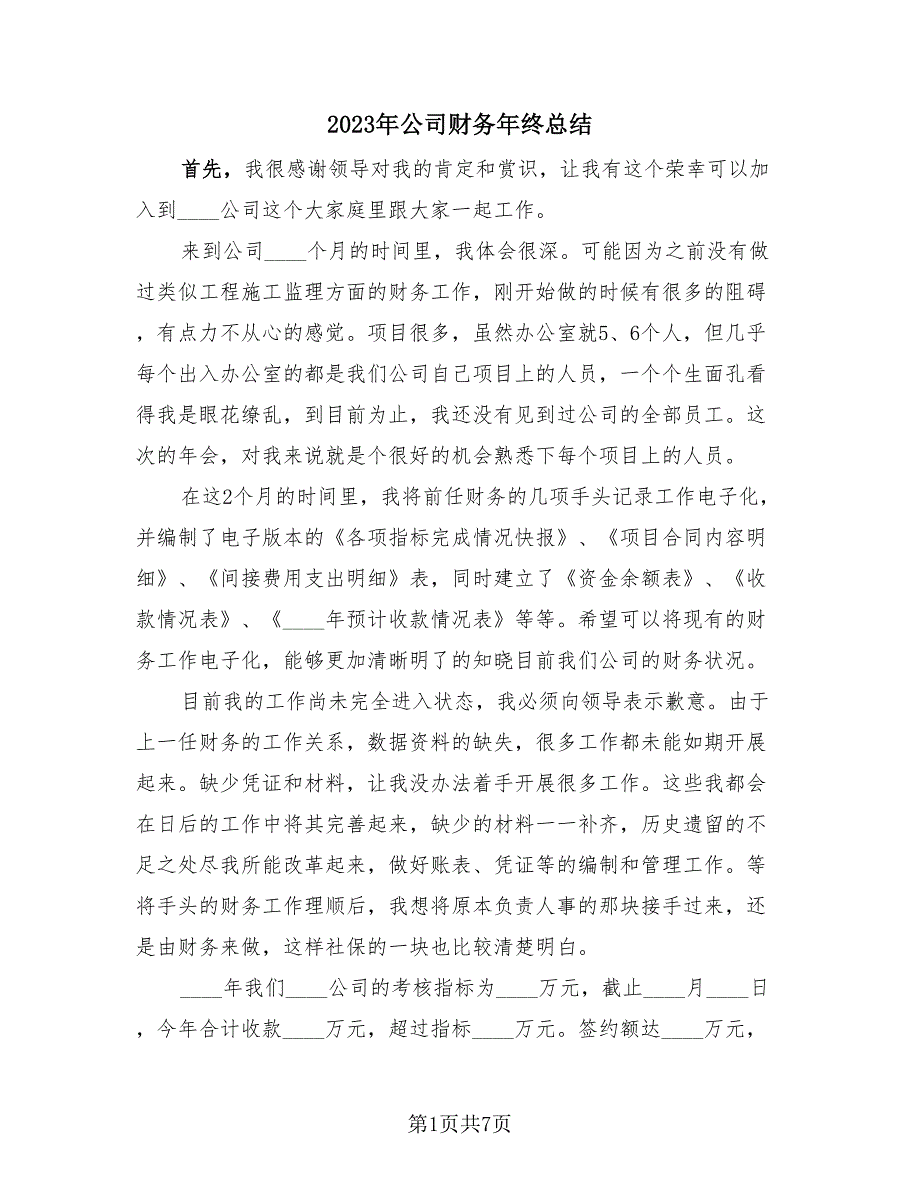 2023年公司财务年终总结
首先，我很感谢领导对我的肯定和赏识，让我有这个荣幸可以加
入到____公司这个大家庭里跟大家一起工作。
来到公司____个月的时间里，我体会很深。可能因为之前没有做
过类似工程施工监理方面的财务工作，刚开始做的时候有很多的阻碍
，有点力不从心的感觉。项目很多，虽然办公室就5、6个人，但几乎
每个出入办公室的都是我们公司自己项目上的人员，一个个生面孔看
得我是眼花缭乱，到目前为止，我还没有见到过公司的全部员工。这
次的年会，对我来说就是个很好的机会熟悉下每个项目上的人员。
在这2个月的时间里，我将前任财务的几项手头记录工作电子化，
并编制了电子版本的《各项指标完成情况快报》、《项目合同内容明
细》、《间接费用支出明细》表，同时建立了《资金余额表》、《收
款情况表》、《____年预计收款情况表》等等。希望可以将现有的财
务工作电子化，能够更加清晰明了的知晓目前我们公司的财务状况。
目前我的工作尚未完全进入状态，我必须向领导表示歉意。由于
上一任财务的工作关系，数据资料的缺失，很多工作都未能如期开展
起来。缺少凭证和材料，让我没办法着手开展很多工作。这些我都会
在日后的工作中将其完善起来，缺少的材料一一补齐，历史遗留的不
足之处尽我所能改革起来，做好账表、凭证等的编制和管理工作。等
将手头的财务工作理顺后，我想将原本负责人事的那块接手过来，还
是由财务来做，这样社保的一块也比较清楚明白。
____年我们____公司的考核指标为____万元，截止____月____日
，今年合计收款____万元，超过指标____万元。签约额达____万元，
第1页共7页